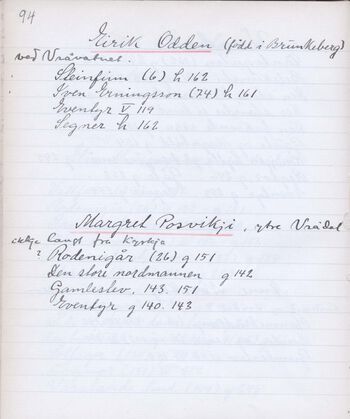 94
Eirik Odden (född i Brunkeberg)
ved Vråvatnet.
Steinfinn (6) h 162
Iven Erningsson (74) h 161
Eventyr V 119
Segner h 162
Margret Posvikji, ytre Vrådal
ikkje langt frå Kyrkja
? Rodenigår (26) g 151
Den store nordmannen g 142
Gamleslev. 143. 151
Eventyr g 140. 143